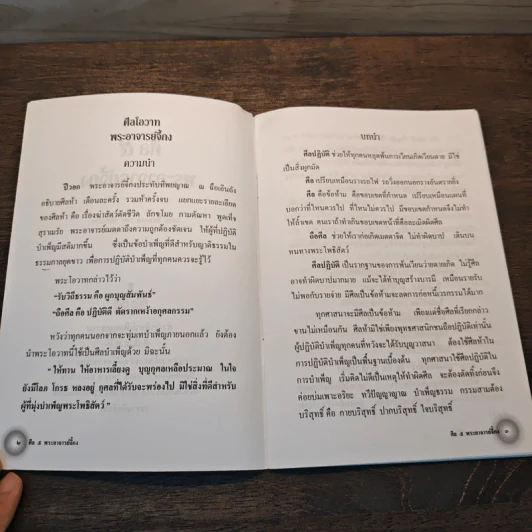 ศีลโอวาท
พระอาจารย์จี้กง
ความนำ
ปีวอก พระอาจารย์จี้กงประทับทิพญาณ ณ ฉือเอินถัง
อธิบายศีลห้า เดือนละครั้ง รวมห้าครั้งจบ แยกแยะรายละเอียด
ของศีลห้า คือ เรื่องฆ่าสัตว์ตัดชีวิต ลักขโมย กามตัณหา พูดเท็จ
สุราเมรัย พระอาจารย์เมตตาถึงความถูกต้องชัดเจน ให้ผู้ที่ปฏิบัติ
บำเพ็ญมีสติมากขึ้น ซึ่งเป็นข้อบำเพ็ญที่ดีสำหรับญาติธรรมใน
ธรรมกาลยุคขาว เพื่อการปฏิบัติบำเพ็ญที่ทุกคนควรจะรู้ไว้
พระโอวาทกล่าวไว้ว่า
"รับวิถีธรรม คือ ผูกบุญสัมพันธ์"
"ถือศีล คือ ปฏิบัติดี ตัดรากเหง้าอกุศลกรรม"
หวังว่าทุกคนนอกจากจะทุ่มเทบำเพ็ญภายนอกแล้ว ยังต้อง
นำพระโอวาทนี้ใช้เป็นศีลบำเพ็ญด้วย มิฉะนั้น
"ให้ทาน ให้อาหารเลี้ยงดู บุญกุศลเหลือประมาณ ในใจ
ยังมีโลภ โกรธ หลงอยู่ กุศลที่ได้รับจะพร่องไป มิใช่สิ่งที่ดีสำหรับ
ผู้ที่มุ่งบำเพ็ญพระโพธิสัตว์"
๒ ศีล ๕ พระอาจารย์จี้กง
บทนำ
ศีลปฏิบัติ ช่วยให้ทุกคนหยุดพ้นการเวียนเกิดเวียนตาย มิใช่
เป็นสิ่งผูกมัด
ศีล เปรียบเหมือนรางรถไฟ ระวังออกนอกรางอันตรายยิ่ง
ศีล คือข้อห้าม คือขอบเขตที่กำหนด เปรียบเหมือนแผนที่
บอกว่าที่ไหนควรไป ที่ไหนไม่ควรไป มีขอบเขตกำหนดจึงไม่ทำ
ให้ล้ำเขต คนเราถ้าทำเกินขอบเขตหน้าที่คือละเมิดผิดศีล
ถือศีล ช่วยให้เรากอเกิดเมตตาจิต ไม่ทำผิดบาป เดินบน
หนทางพระโพธิสัตว์
ศีลปฏิบัติ เป็นรากฐานของการพ้นเวียนว่ายตายเกิด ไม่รู้ศีล
อาจทำผิดบาปมากมาย แม้จะได้ทำบุญสร้างบารมี เหมือนรายรับ
ไม่พอกับรายจ่าย มีศีลเป็นข้อห้ามจะลดการก่อหนี้เวรกรรมได้มาก
ทุกศาสนาจะมีศีลเป็นข้อห้าม เพียงแต่ชื่อศีลที่เรียกกล่าว
ขานไม่เหมือนกัน ศีลห้ามิใช่เพียงพุทธศาสนิกชนถือปฏิบัติเท่านั้น
ผู้ปฏิบัติบำเพ็ญทุกคนที่หวังจะได้รับบุญวาสนา ต้องใช้ศีลห้าใน
การปฏิบัติบำเพ็ญเป็นพื้นฐานเบื้องต้น ทุกศาสนาใช้ศีลปฏิบัติใน
การบำเพ็ญ เริ่มคิดไม่ดีเป็นเหตุให้ทำผิดศีล จะต้องตัดทิ้งก่อนจึง
ค่อยบ่มเพาะอริยะ ทวีปัญญาญาณ บำเพ็ญธรรม กรรมสามต้อง
บริสุทธิ์ คือ กายบริสุทธิ์ ปากบริสุทธิ์ ใจบริสุทธิ์
ศีล ๕ พระอาจารย์จี้กง ๓